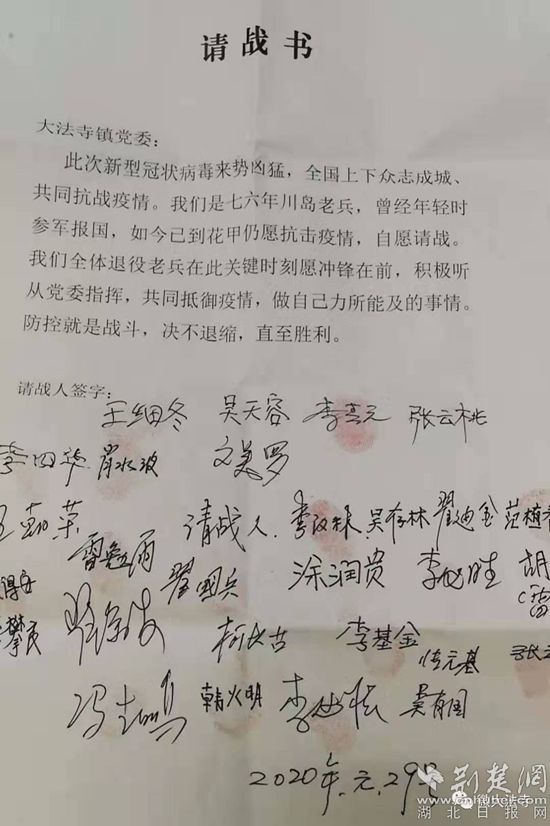 请战书
大法寺镇党委：
此次新型冠状病毒来势凶猛，全国上下众志成城、
共同抗战疫情。我们是七六年川岛老兵，曾经年轻时
参军报国，如今已到花甲仍愿抗击疫情，自愿请战。
我们全体退役老兵在此关键时刻愿冲锋在前，积极听
从党委指挥，共同抵御疫情，做自己力所能及的事情。
防控就是战斗，决不退缩，直至胜利。
请战人签字：
王细冬 吴天容 李亮元 张云桃
李四华 肖水波 文美罗
荣 请战人 吴存林 翟迪金 范植
翟国兵 涂润贵 李 胜 胡
柯长古 李基金 元基
冯 韩火明 李 吴有国
2020年.元.29号
荆楚网
www.cnhubei.com
微大法寺
湖北日报网